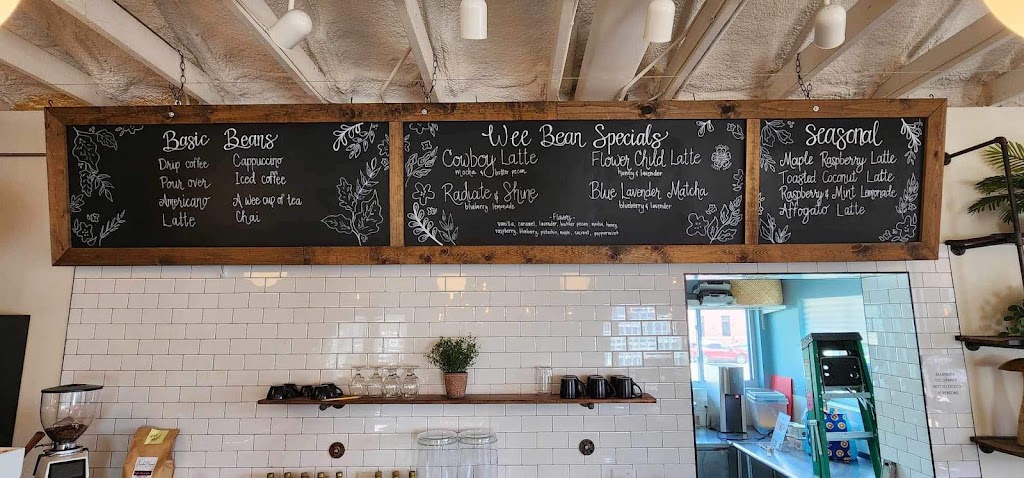 Basic Beans
Drip coffee
Pour over
Americano
Latte
Cappuccino
Iced coffee
A wee cup of tea
Chai
Wee Bean Specials
Cowboy Latte
mocha butter pecan
Radiate & Shine
blueberry lemonade
Flower Child Latte
honey & lavender
Blue Lavender Matcha
blueberry & lavender
-Flavors-
vanilla, caramel, lavender, butter pecan, mocha, honey,
raspberry, blueberry, pistachio, maple, coconut, peppermint
Seasonal
Maple Raspberry Latte
Toasted Coconut Latte
Raspberry & Mint Lemonade
Affogato Latte
MAXIMUM
OCCUPANCY
NOT TO EXCEED
PERSONS